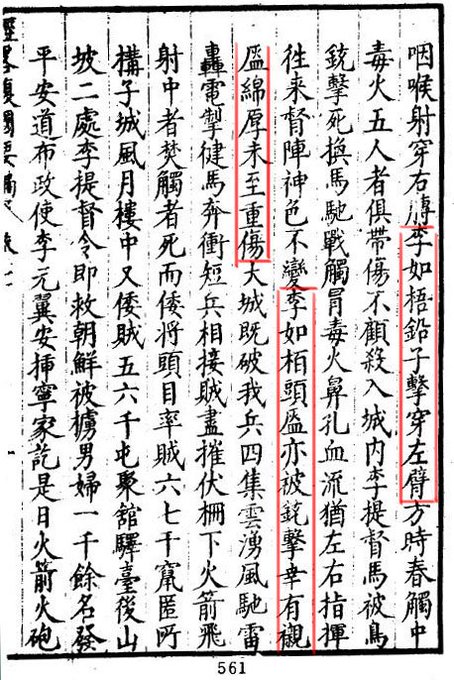 咽喉射穿右膊李如梧鉛子擊穿左臂方時春觸中
毒火五人者俱帶傷不顧殺入城內李提督馬被鳥
銃擊死換馬馳戰觸冒毒火鼻孔血流猶左右指揮
往來督陣神色不變李如栢頭盔亦被銃擊幸有襯
盔綿厚未至重傷大城既破我兵四集雲湧風馳雷
轟電掣健馬奔衝短兵相接賊盡摧伏柵下火箭飛
射中者焚觸者死而倭將頭目率賊六七千竄匿所
構子城風月樓中又倭賊五六千屯聚館驛臺後山
坡二處李提督令即救朝鮮被擄男婦一千餘名發
平安道布政使李元翼安揷寧家訖是日火箭火砲
經略復國要編
561